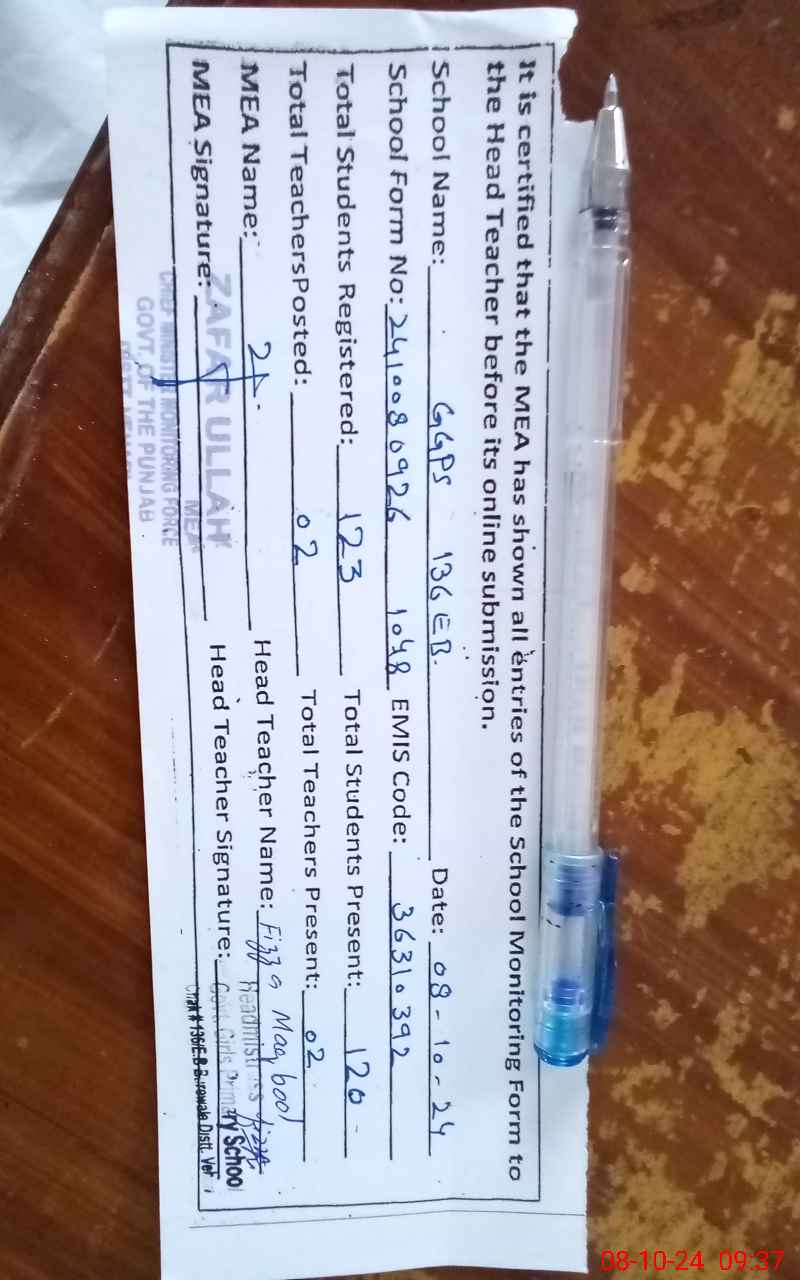 It is certified that the MEA has shown all entries of the School Monitoring Form to
the Head Teacher before its online submission.
School Name: GGPS 136 EB. Date: 08-10-24
School Form No: 2410080926 1048 EMIS Code: 36310392
Total Students Registered: 123 Total Students Present: 120
Total TeachersPosted: 02 Total Teachers Present: 02
MEA Name: Head Teacher Name: Fizza Maqbool
MEA Signature: Head Teacher Signature:
ZAFAR ULLAH
MEA
CHIEF MINISTER MONITORING FORCE
GOVT. OF THE PUNJAB
Headmistress
Govt Girls Primary School
Chak # 136/E.B Burewala Distt.
08-10-24 09:37